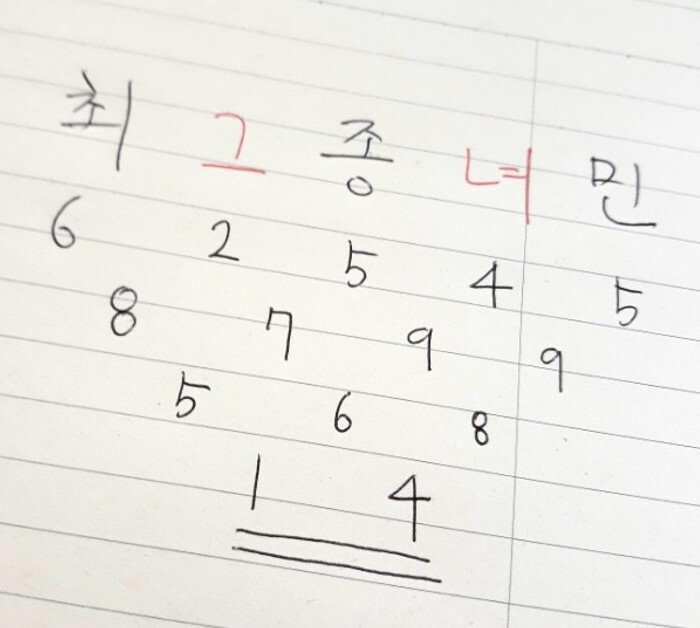 최 그 종 녀 민
6 2 5 4 5
8 7 9 9
5 6 8
1 4